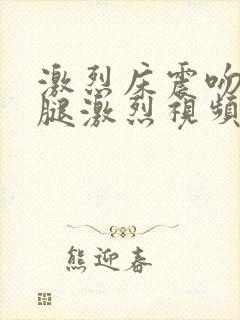 激烈床震吻
腿激烈視頻
熊迎春